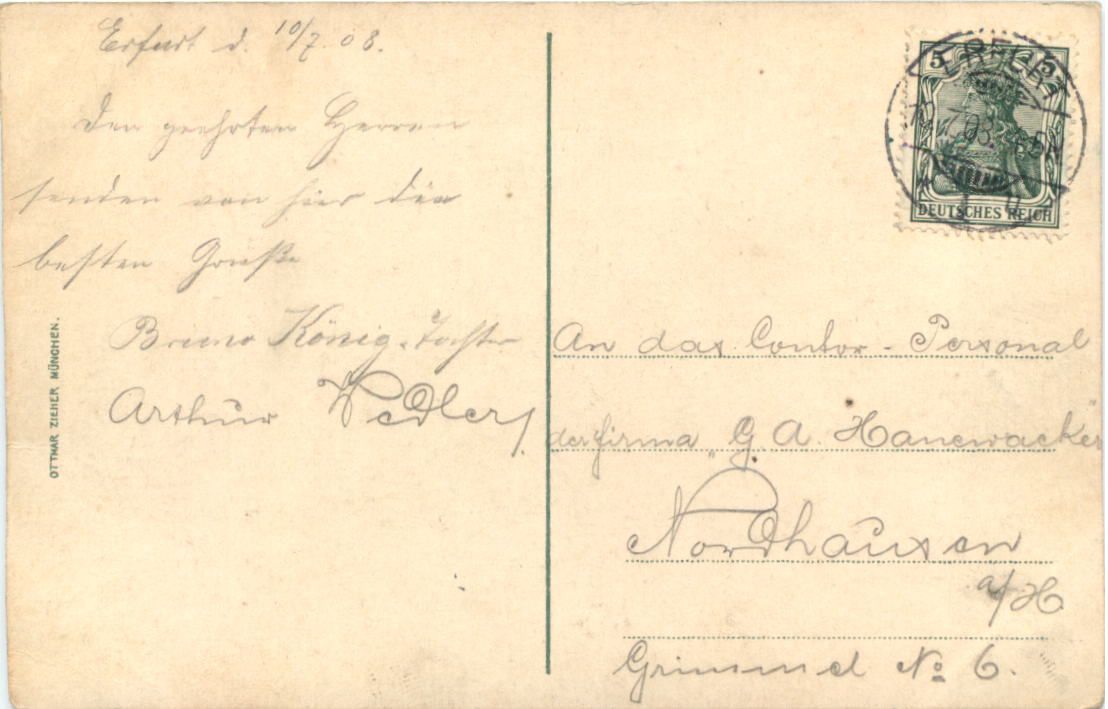 Erfurt d. 10/7. 08.
Den geehrten Herren
senden von hier die
besten Grüße
Bruno König,
Arthur
OTTMAR ZIEHER MÜNCHEN.
5 5
DEUTSCHES REICH
ERFURT
An das Contor-Personal
der Firma „G. A. Hanewacker"
Nordhausen
a/H
Grimmel No 6.